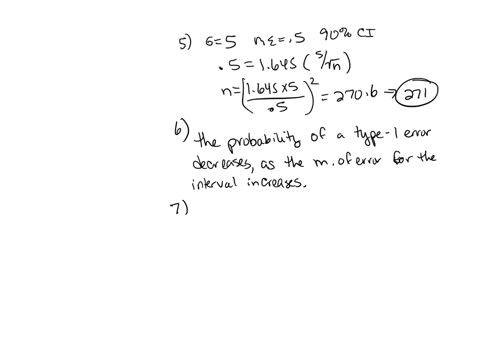 5) σ=5 mε=.5 90% CI
.5=1.645(5/√n)
n=(1.645×5/.5)²=270.6→271
6) the probability of a type-1 error
decreases, as the m.of error for the
interval increases.
7)